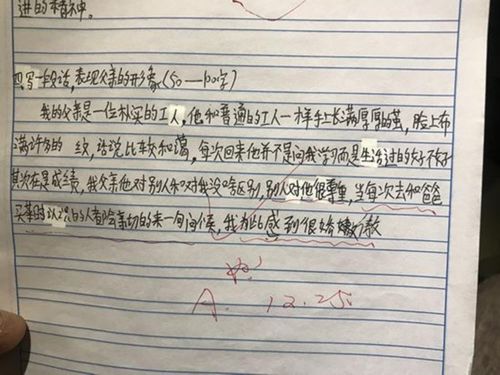 进的精神。
四.写一段话,表现父亲的形象(50—100字)
我的父亲是一位朴实的工人,他和普通的工人一样手上长满厚厚的茧,脸上布
满许多的纹,话说比较和蔼,每次回来他并不是问我学习而是生活过的好不好
其次在是成绩,我父亲他对别人和对我没啥区别,别人对他很尊重,当每次去和爸爸
买菜时认识的人都会亲切的来一句问候,我为此感到很骄傲
A. 12.25